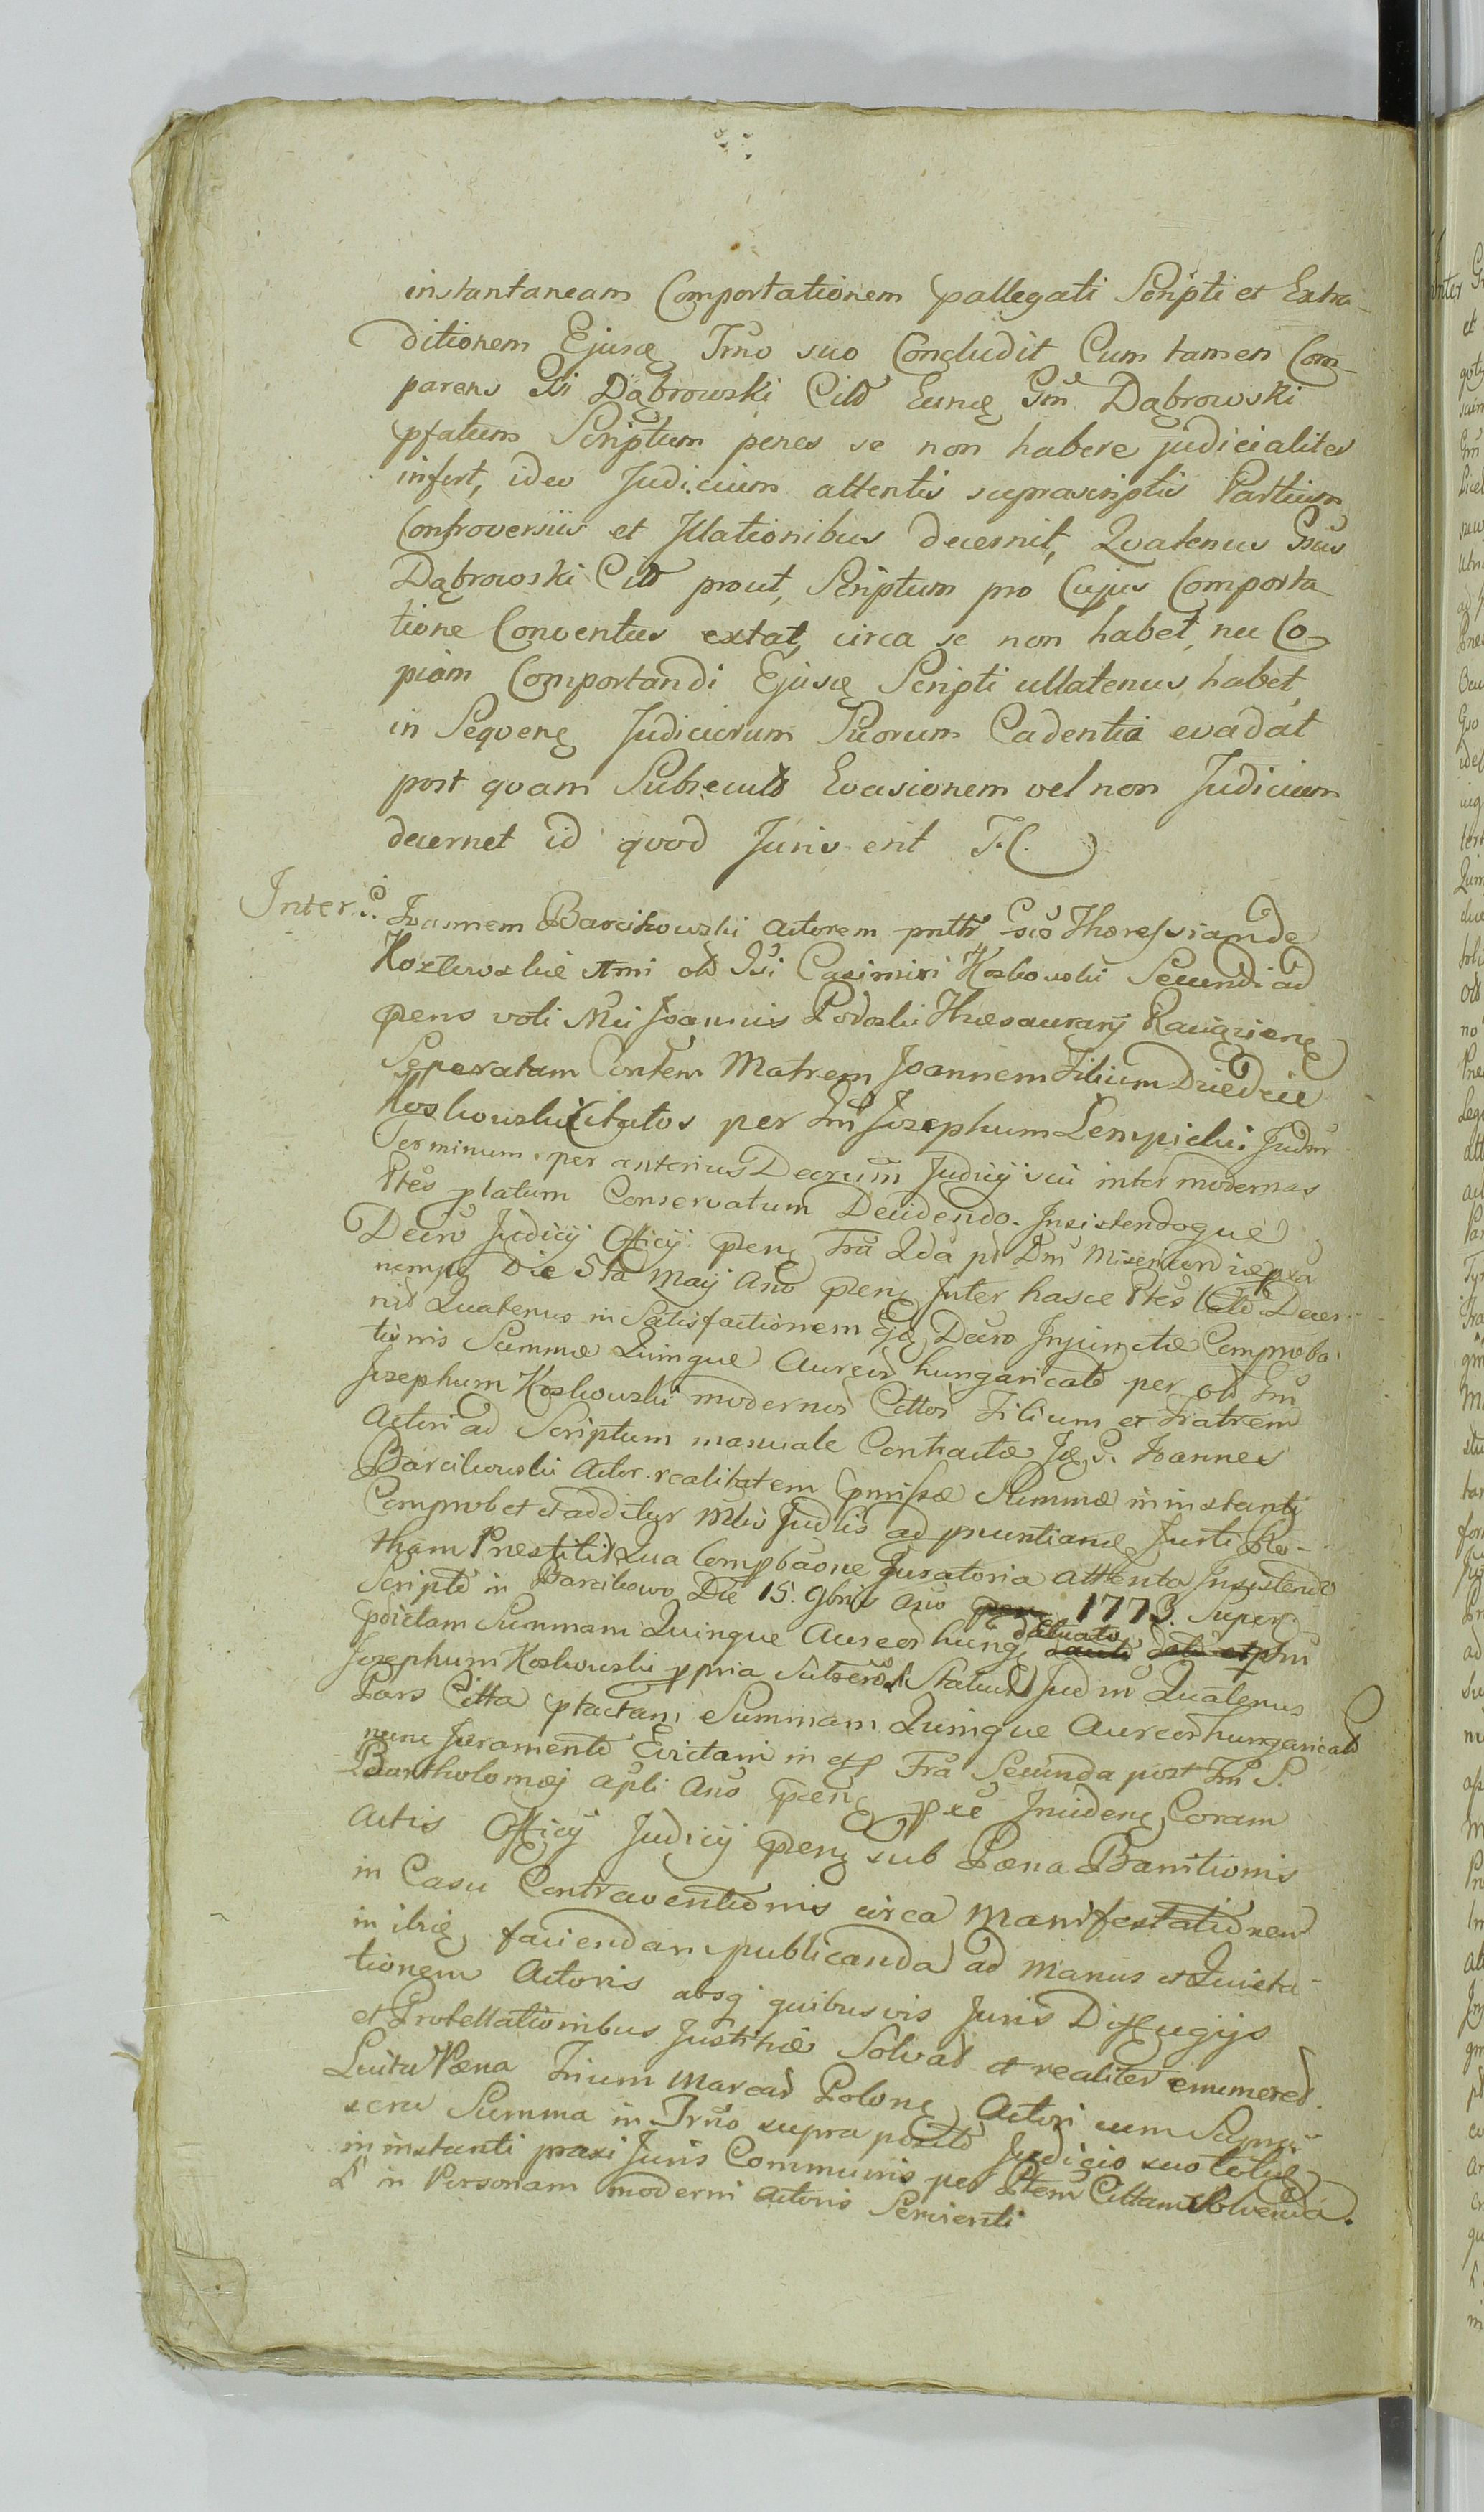 instantaneam Comportationem pallegati Scripti et Extra-
ditionem Ejusq Trno suo Concludit Cum tamen Com-
parens Gsi Dąbrowski Citt Eunq Gm Dąbrowski
pfatum Scriptum penes se non habere judicialiter
infert, ideo Judicium attentis suprascriptis Partium
Controversiis et Illationibus decernit, Quatenus Gsus
Dąbrowski Citt prout, Scriptum pro Cujus Comporta-
tione Conventus extat, circa se non habet, nec Co-
piam Comportandi Ejusq Scripti ullatenus habet,
in Seqvenq Judiciorum Suorum Cadentia evadat
post qvam Subsecuto Evasionem vel non Judicium
decernet id qvod Juris erit T.C.
Inter G. Joannem Barcikowski Actorem pntte Theressiam de
Kozlowskie olt Gsi Casimiri Koskowski Secundi ad
pens voti Mci Joannis Podoski Thesaurarij Raciązienq
Seperatam Contem Matrem Joannem Filium Driedzie
Koskowski Citatos per Gm Josephum Lempicki Judm
Terminum per anterius Decrum Judicij sui inter modernas
Ptes platum Conservatum Decidendo. Insistendoque
Decro Judicij Officij penq Fra 2da pt Dm Misericordiæ pxa
nempe Die 5ta Maij Ano penq Inter hasce Ptes Lato Decer-
nit Quatenus in Satisfactionem Ejq Decro Injunctæ Comproba-
tionis Summæ Quinque Aureor hungaricalt per olt Gm
Josephum Koskowski modernor Cittor Filium et Fratrem
Actori ad Scriptum manuale Contractæ Jq G. Joannes
Barcikowski Actor realitatem pmissæ Summæ in instanti
Comprobet et additur Mtio Judlis ad pnuntianq Jurti Ro-
tham Præstitit Qua Compbaone Juratoria attenta Insistendo
Scripto in Barcikowo Die 15. 9bris Ano 1773. Super
pdictam Summam Quinque Aureor hung datuato phm
Josephum Koskowski ppria Subscro Statuit Judm Quatenus
Pars Citta ptactam Summam Quinque Aureor hungaricalt
nunc Juramento Evictam in et Fra Secunda post Fm S.
Bartholomæj apli Ano penq pxe Incidenq Coram
Actis Officij Judicij penq sub Pæna Banitionis
in Casu Contraventionis circa Manifestationem
in ibiq faciendam publicanda ad manus et Quieta-
tionem Actoris absq quibusvis Juris Diffugijs
et Protellationibus Justitiæ Solvat et realiter enumeret.
Luita Pæna Trium Marcar Polonq Actori cum Supra-
scra Summa in Trno supra posito Judicio suo totus
in instanti praxi Juris Communis per Ptem Cittam Solvenda.
Lt in Personam moderni Actoris Servienti